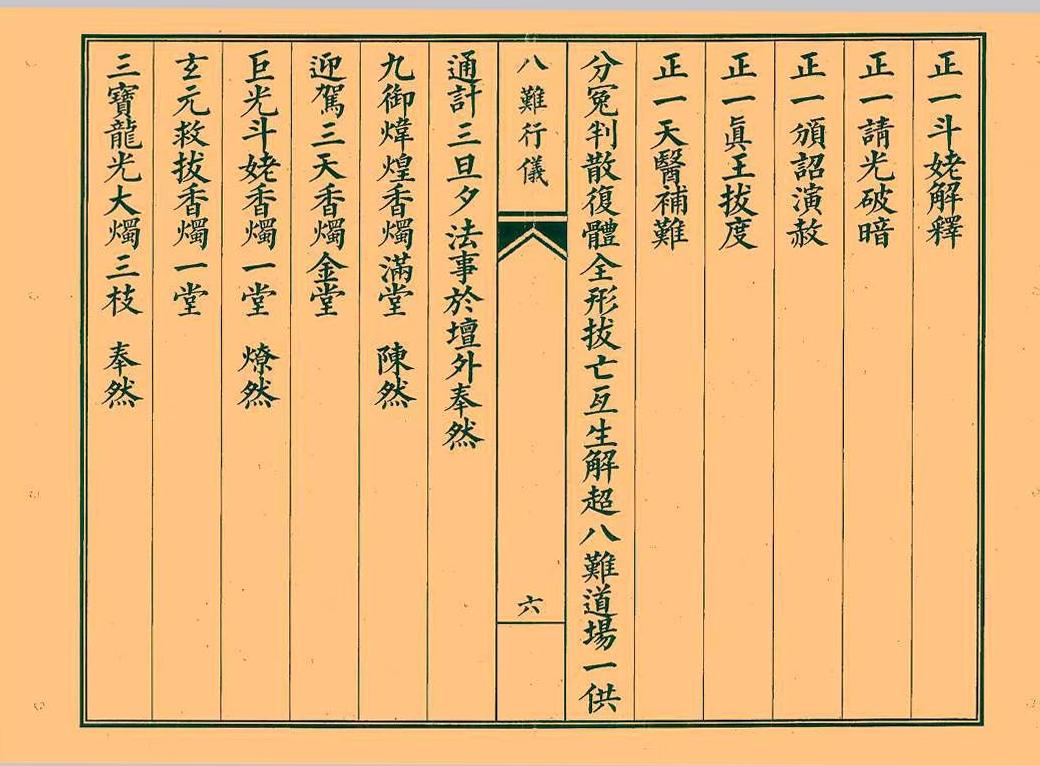 正一斗姥解釋
正一請光破暗
正一頒詔演赦
正一眞王拔度
正一天醫補難
分冤判散復體全形拔亡亙生解超八難道場一供
八難行儀
六
通計三旦夕法事於壇外奉然
九御煒煌香燭滿堂　陳然
迎駕三天香燭金堂
巨光斗姥香燭一堂　燎然
玄元救拔香燭一堂
三寶龍光大燭三枝　奉然